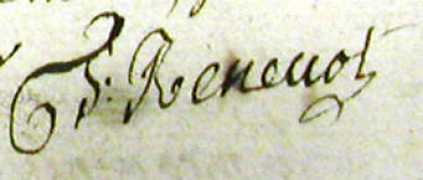 F: Renenot